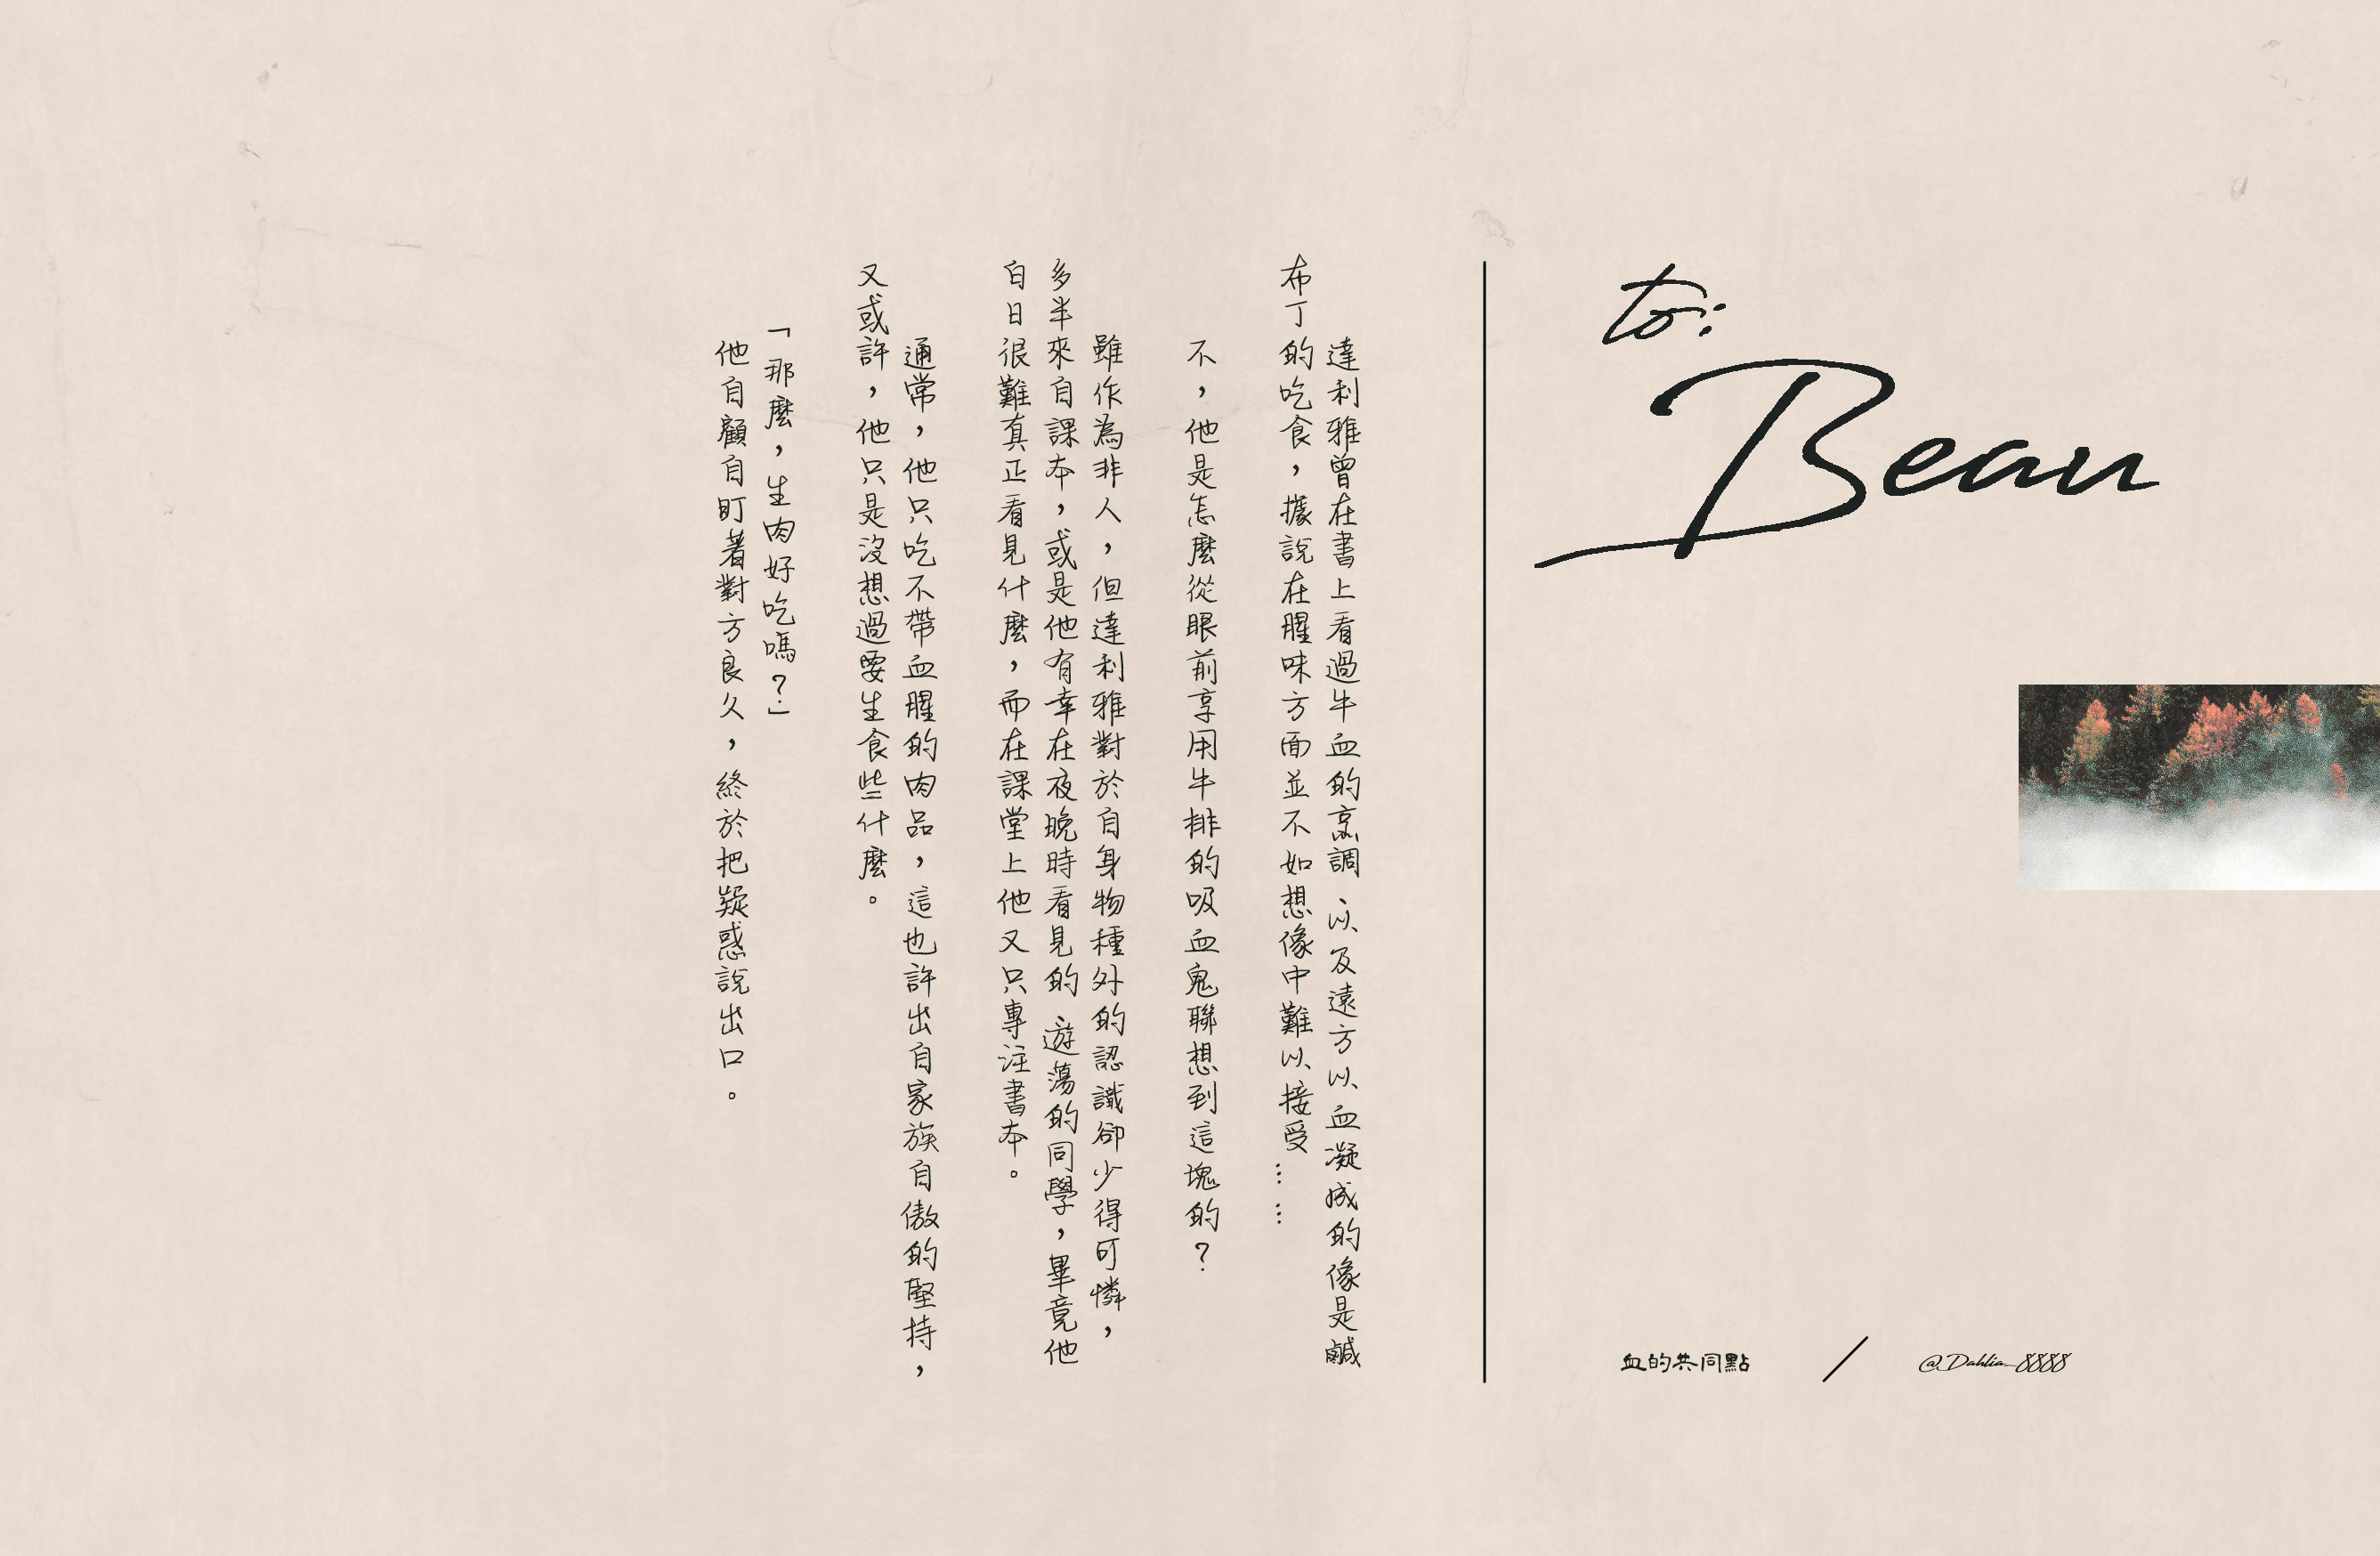 to:
Beau
達利雅曾在書上看過牛血的烹調、以及遠方以血凝成的像是鹹
布丁的吃食，據說在腥味方面並不如想像中難以接受……
不，他是怎麼從眼前享用牛排的吸血鬼聯想到這塊的？
雖作為非人，但達利雅對於自身物種外的認識卻少得可憐，
多半來自課本，或是他有幸在夜晚時看見的、遊蕩的同學，畢竟他
白日很難真正看見什麼，而在課堂上他又只專注書本。
通常，他只吃不帶血腥的肉品，這也許出自家族自傲的堅持，
又或許，他只是沒想過要生食些什麼。
「那麼，生肉好吃嗎？」
他自顧自盯著對方良久，終於把疑惑說出口。
血的共同點 / @Dahlia_8888